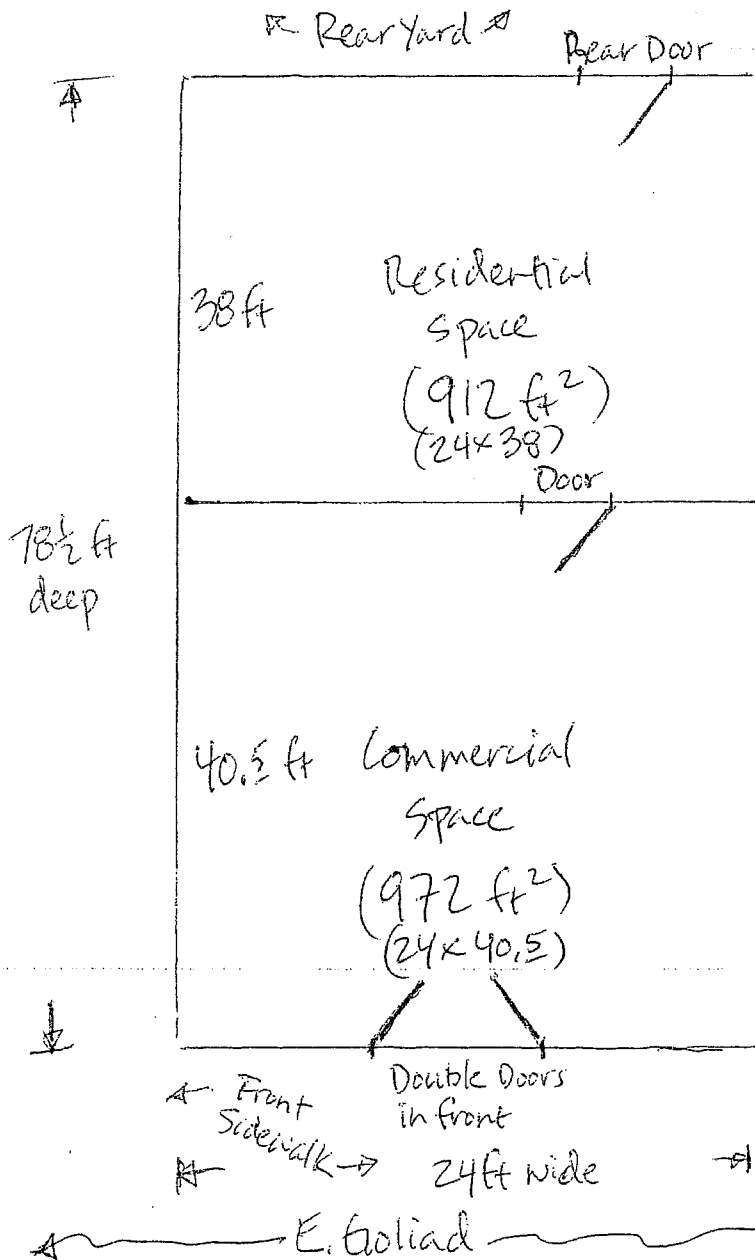 Rear Yard
Rear Door
38 ft
Residential
Space
(912 ft²)
(24×38)
Door
78½ ft
deep
40.5 ft
Commercial
Space
(972 ft²)
(24×40.5)
Front
Sidewalk
Double Doors
in front
24 ft wide
E. Goliad